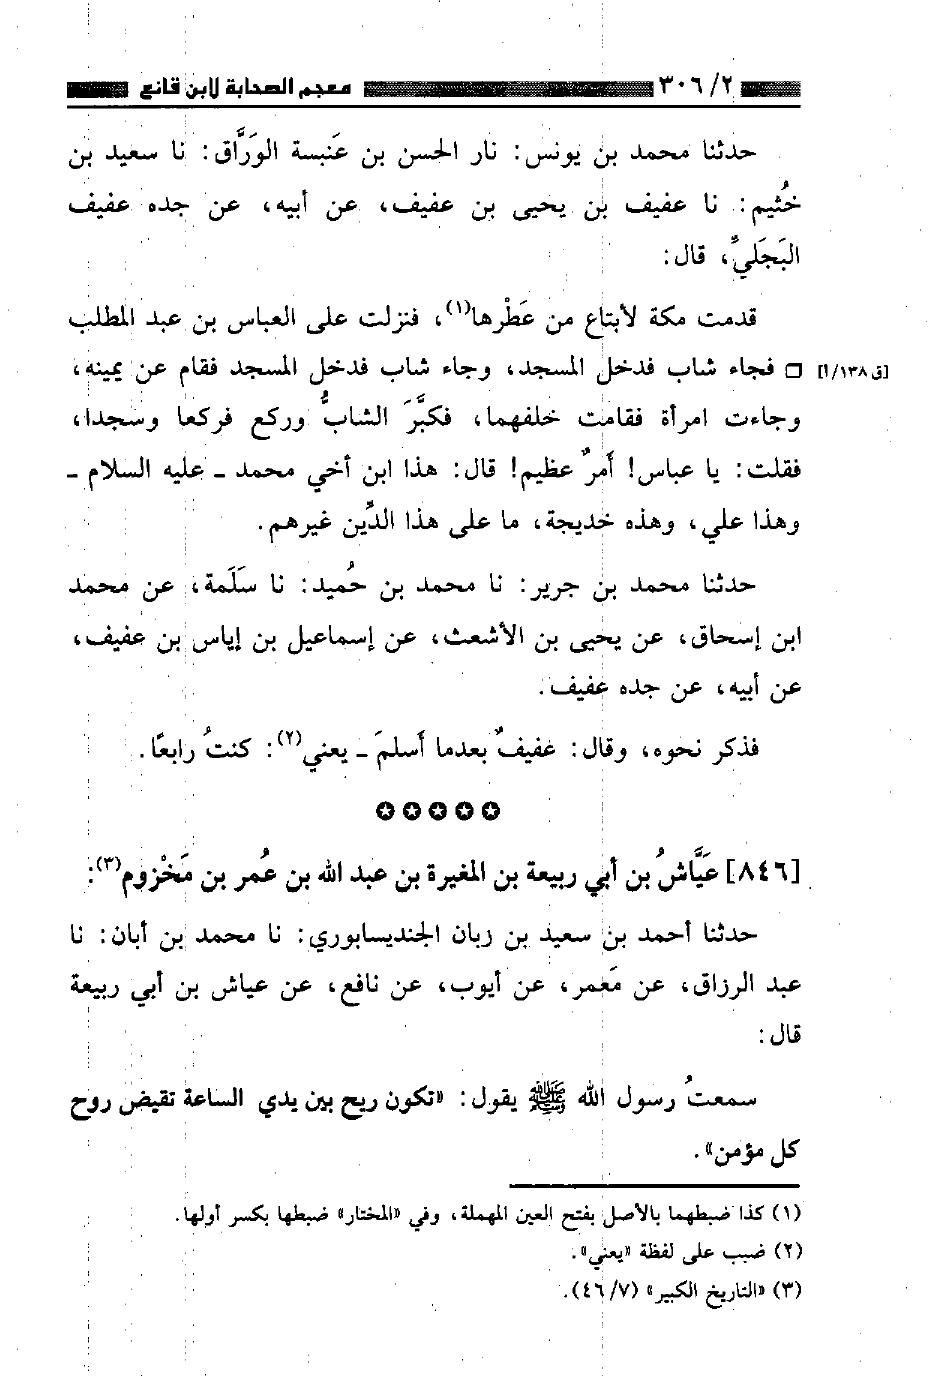 ٢/ ٣٠٦ معجم الصحابة لابن قانع
حدثنا محمد بن يونس: نار الحسن بن عَنبسة الورَّاق: نا سعيد بن
خُثيم: نا عفيف بن يحيى بن عفيف، عن أبيه، عن جده عفيف
البَجَليِّ، قال:
قدمت مكة لأبتاع من عَطْرها(١)، فنزلت على العباس بن عبد المطلب
[ق ١٣٨/أ] □ فجاء شاب فدخل المسجد، وجاء شاب فدخل المسجد فقام عن يمينه،
وجاءت امرأة فقامت خلفهما، فكبَّرَ الشابُّ وركع فركعا وسجدا،
فقلت: يا عباس! أَمرٌ عظيم! قال: هذا ابن أخي محمد ـ عليه السلام ـ
وهذا علي، وهذه خديجة، ما على هذا الدِّين غيرهم.
حدثنا محمد بن جرير: نا محمد بن حُميد: نا سَلَمة، عن محمد
ابن إسحاق، عن يحيى بن الأشعث، عن إسماعيل بن إياس بن عفيف،
عن أبيه، عن جده عفيف.
فذكر نحوه، وقال: عفيفٌ بعدما أَسلمَ ـ يعني(٢): كنتُ رابعًا.
✪✪✪✪✪
[٨٤٦] عَيَّاشُ بن أبي ربيعة بن المغيرة بن عبد الله بن عُمر بن مَخْزوم(٣):
حدثنا أحمد بن سعيد بن زبان الجنديسابوري: نا محمد بن أبان: نا
عبد الرزاق، عن مَعمر، عن أيوب، عن نافع، عن عياش بن أبي ربيعة
قال:
سمعتُ رسول الله ﷺ يقول: «تكون ريح بين يدي الساعة تقيض روح
كل مؤمن».
(١) كذا ضبطهما بالأصل بفتح العين المهملة، وفي «المختار» ضبطها بكسر أولها.
(٢) ضبب على لفظة «يعني».
(٣) «التاريخ الكبير» (٧/ ٤٦).